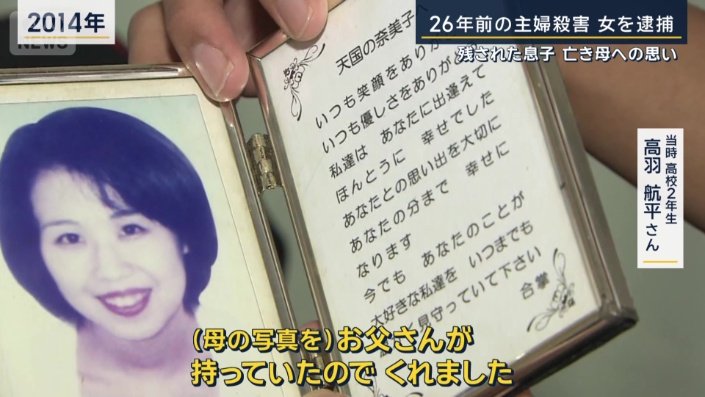 2014年
NEWS
26年前の主婦殺害 女を逮捕
残された息子 亡き母への思い
当時 高校2年生
高羽 航平さん
天国の奈美子へ
いつも笑顔をありが
いつも優しさをありが
私達は あなたに出逢えて
ほんとうに 幸せでした
あなたとの思い出を大切に
あなたの分まで 幸せに
なります
今でも あなたのことが
大好きな私達を いつまでも
見守っていて下さい
合掌
(母の写真を)お父さんが
持っていたので くれました